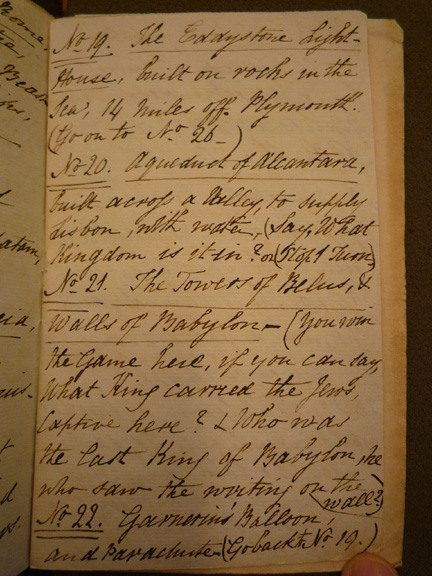 No 19. The Eddystone Light-
House, built on rocks in the
Sea, 14 Miles off Plymouth.
(Go on to No 26-)
No 20. Aqueduct of Alcantara,
built across a Valley, to supply
Lisbon, with water, (Say, What
Kingdom is it in? or (Stop 1 Turn)
No 21. The Towers of Belus, &
Walls of Babylon - (You win
the Game here, if you can say,
What King carried the Jews,
Captive here? & Who was
the last King of Babylon, he
who saw the writing on the
wall?)
No 22. Garnerin's Balloon,
and Parachute (Go back to No 19.)